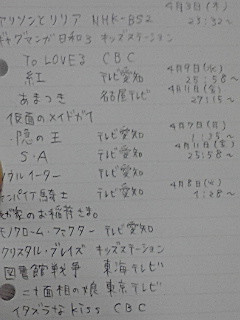 アリソンとリリア NHK-BS2 4月3日(木) 23:32〜
ギャグマンガ日和3 キッズステーション
To LOVEる CBC
紅 テレビ愛知 4月9日(水) 25:58〜
あまつき 名古屋テレビ 4月11日(金) 27:15〜
仮面のメイドガイ
隠の王 テレビ愛知 4月7日(月) 1:35〜
S・A テレビ愛知 4月11日(金) 25:58〜
ソウルイーター テレビ愛知
ヴァンパイア騎士 テレビ愛知 4月8日(火) 1:28〜
我が家のお稲荷さま。
モノクローム・ファクター テレビ愛知
クリスタル・ブレイズ キッズステーション
図書館戦争 東海テレビ
二十面相の娘 東京テレビ
イタズラなKiss CBC